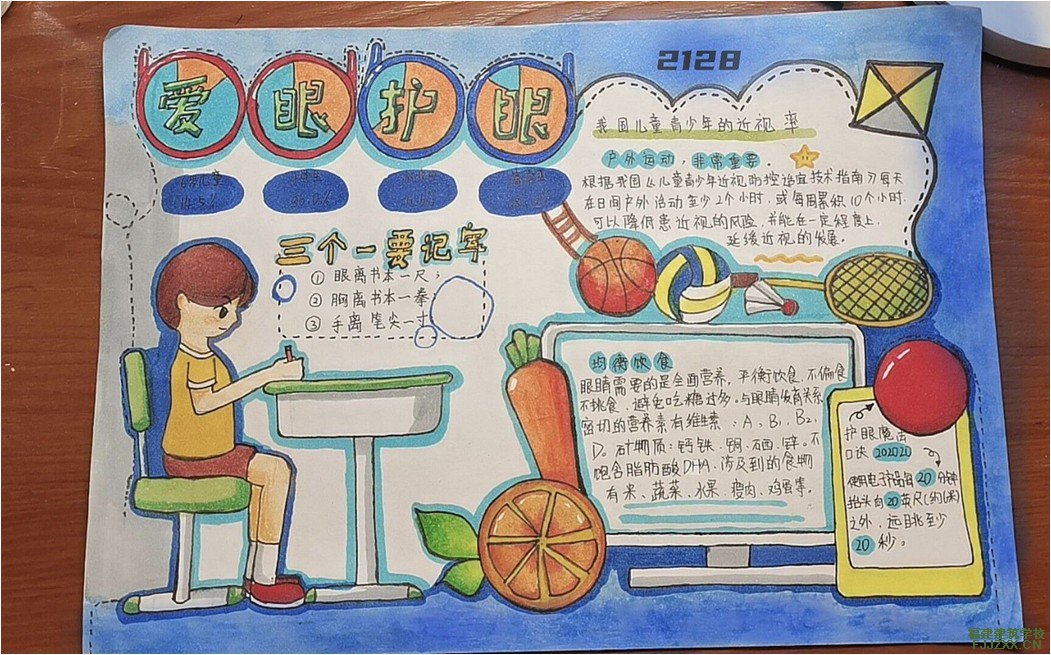 爱眼护眼
2128
我国儿童青少年的近视率
户外运动，非常重要。
根据我国《儿童青少年近视防控适宜技术指南》每天
在日间户外活动至少2个小时，或每周累积10个小时.
可以降低患近视的风险，并能在一定程度上，
延缓近视的发展。
14.5%
三个一要记牢
① 眼离书本一尺；
② 胸离书本一拳；
③ 手离笔尖一寸
均衡饮食
眼睛需要的是全面营养，平衡饮食、不偏食
不挑食、避免吃糖过多。与眼睛发育关系
密切的营养素有维生素：A、B₁、B₂、
D。矿物质：钙铁、铜、硒、锌。不
饱合脂肪酸DHA.涉及到的食物
有米、蔬菜、水果、瘦肉、鸡蛋等。
护眼魔法
口诀 202020
使用电子产品每20分钟
抬头向20英尺(约6米)
之外，远眺至少
20秒。
福建建筑学校
FJJZXX.CN